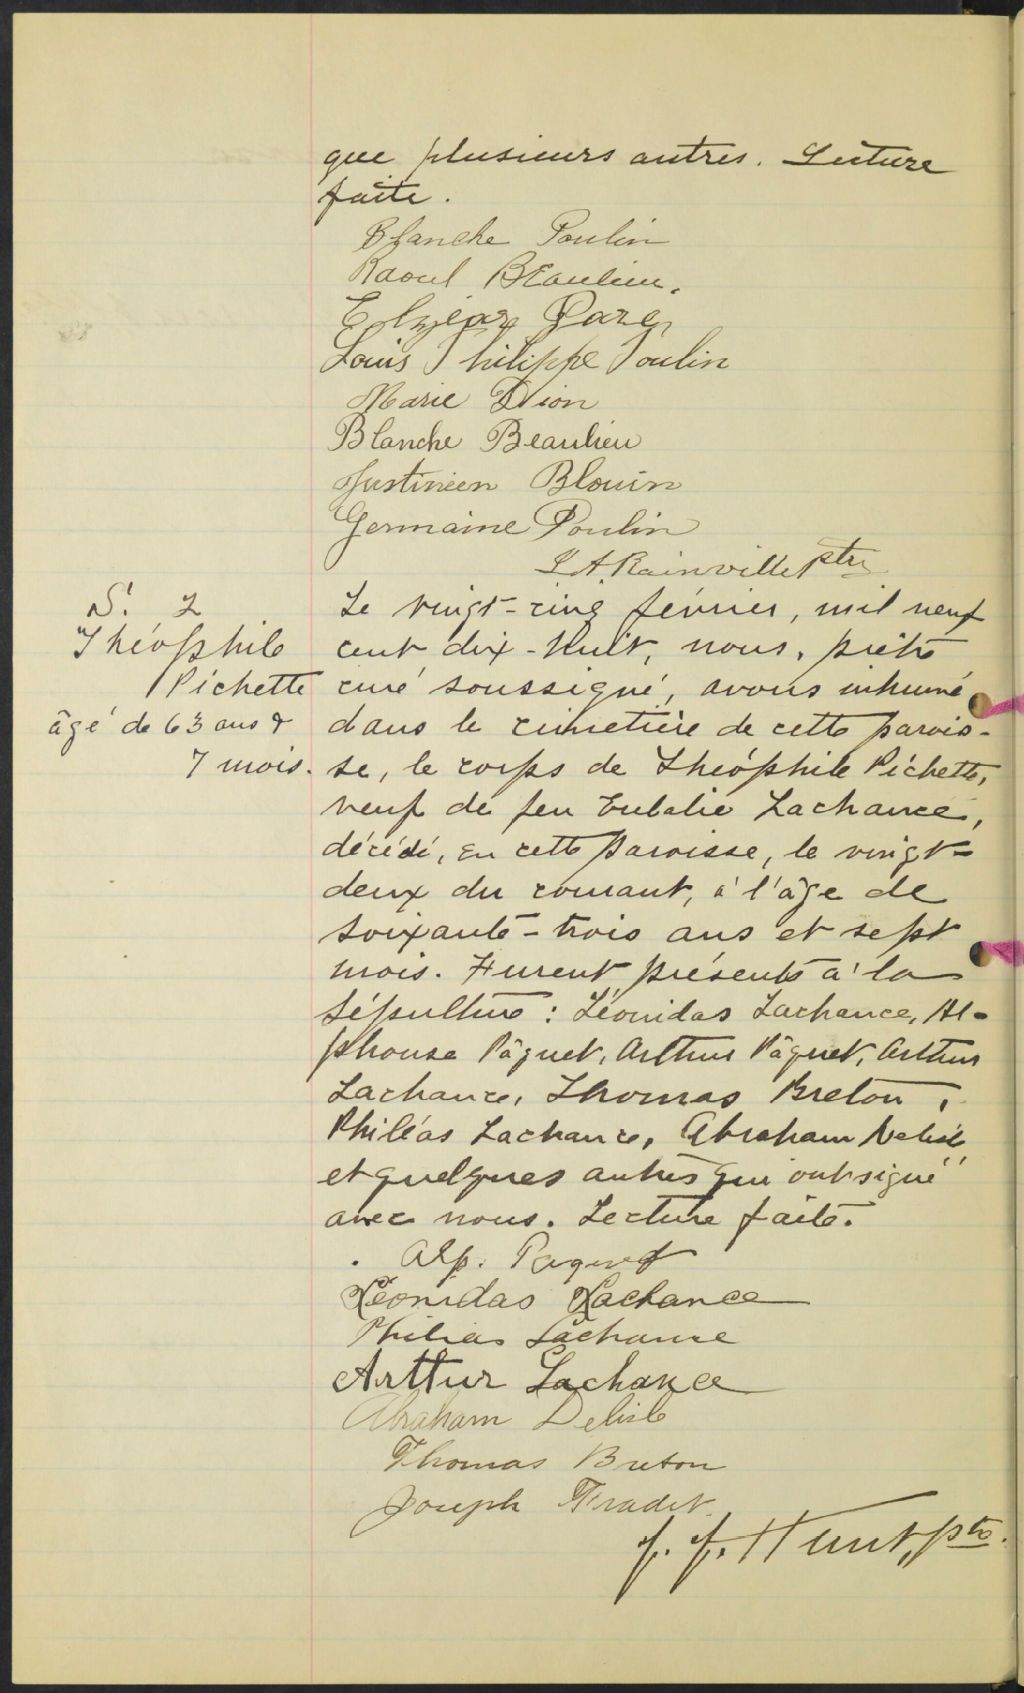 que plusieurs autres. Lecture
faite.
Blanche Poulin
Raoul Beaulieu.
Elzéar Paré
Louis Philippe Poulin
Marie Dion
Blanche Beaulieu
Justinien Blouin
Germaine Poulin
L A Rainville ptre
S. 2
Théophile
Pichette
âgé de 63 ans &
7 mois.
Le vingt-cinq février, mil neuf
cent dix-huit, nous, prêtre
curé soussigné, avons inhumé
dans le cimetière de cette parois-
se, le corps de Théophile Pichette,
veuf de feu Eulalie Lachance,
décédé, en cette paroisse, le vingt-
deux du courant, à l'âge de
soixante-trois ans et sept
mois. Furent présents à la
sépulture : Léonidas Lachance, Al-
phonse Pâquet, Arthur Pâquet, Arthur
Lachance, Thomas Breton,
Philéas Lachance, Abraham Delisle
et quelques autres qui ont signé
avec nous. Lecture faite.
Alp. Paquet
Léonidas Lachance
Philias Lachance
Arthur Lachance
Abraham Delisle
Thomas Breton
Joseph Fradet
J. J. Hunt, ptre.